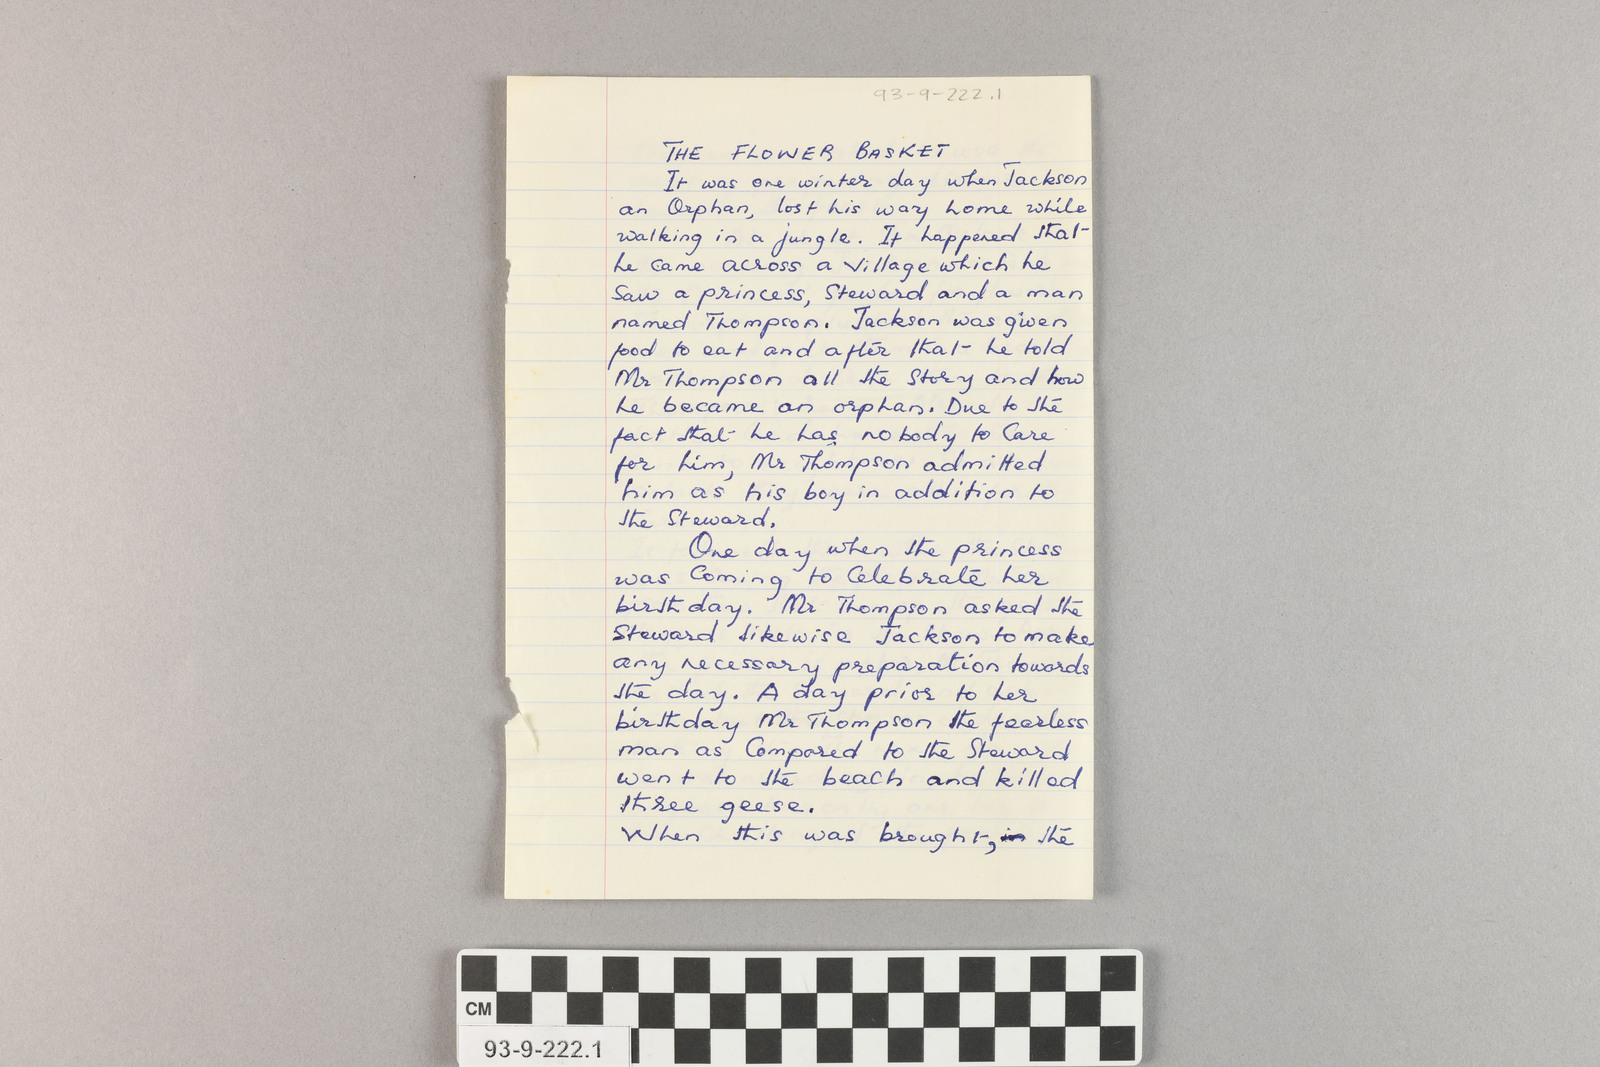 93-9-222.1
THE FLOWER BASKET
It was one winter day when Jackson
an Orphan, lost his way home while
walking in a jungle. It happened that
he came across a village which he
Saw a princess, Steward and a man
named Thompson. Jackson was given
food to eat and after that he told
Mr Thompson all the Story and how
he became an orphan. Due to the
fact that he has nobody to Care
for him, Mr Thompson admitted
him as his boy in addition to
the Steward.
One day when the princess
was Coming to Celebrate her
birthday. Mr Thompson asked the
Steward likewise Jackson to make
any necessary preparation towards
the day. A day prior to her
birthday Mr Thompson the fearless
man as Compared to the Steward
went to the beach and killed
three geese.
When this was brought, in the
CM
93-9-222.1